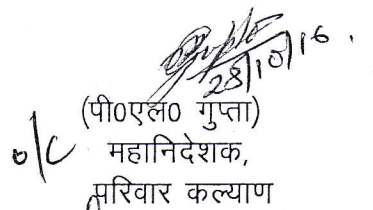 Gupta
28/10/16.
(पी0एल0 गुप्ता)
o/c महानिदेशक,
परिवार कल्याण